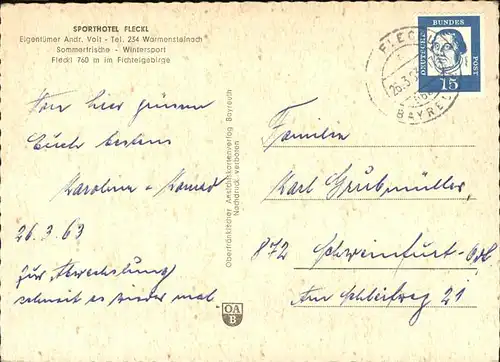 SPORTHOTEL FLECKL
Eigentümer Andr. Voit - Tel. 234 Warmensteinach
Sommerfrische - Wintersport
Fleckl 760 m im Fichtelgebirge
Von hier grüssen
Euch bestens
Karolina + Konrad
26.3.63
zur Abwechslung
schneit es wieder mal
Oberfränkischer Ansichtskartenverlag Bayreuth
Nachdruck verboten
OA
B
FLECKL
26.3.63
BAYREU
DEUTSCHE
BUNDES
POST
15
Familie
Karl Grubmüller
872 Schweinfurt-Obb
Am Schleifweg 21